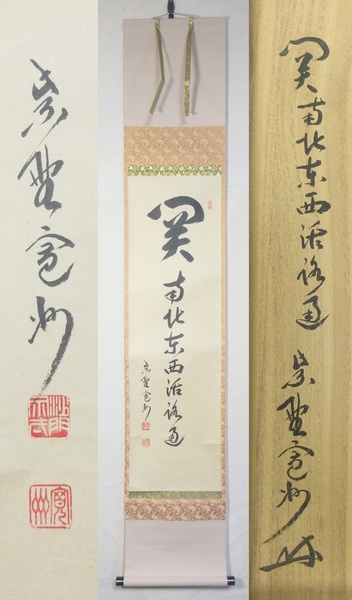 紫野寛州
寛州
関
南北東西活路通
紫野寛州
関南北東西活路通
紫野寛州